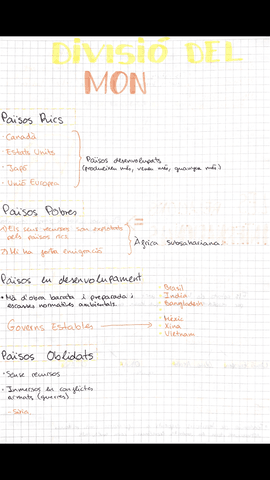 DIVISIÓ DEL
MON
Països Rics
- Canadà
- Estats Units
- Japó
- Unió Europea
Països desenvolupats
(produeixen més, venen més, guanyen més)
Països Pobres
1) Els seus recursos són explotats
pels països rics
2) Hi ha forta emigració
=
Àfrica subsahariana
Països en desenvolupament
• Mà d'obra barata i preparada i
escasses normatives ambientals.
Brasil
India
Bangladesh
Governs Estables
Mèxic
Xina
Vietnam
Països Oblidats
- Sense recursos
- Inmersos en conflictes
armats (guerres)
- Síria